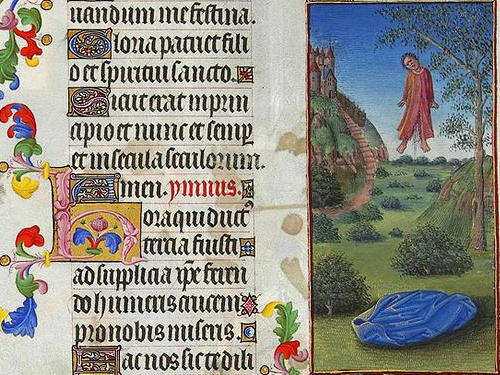 uandum me festina.
Gloria patri et fili
o et spiritui sancto.
Sicut erat in prin
cipio et nunc et semp
et in secula seculorum.
Amen. ymnus.
Hora qui duct9
tercia fuisti
ad supplicia xpe feren
do humeris crucem
pro nobis miseris.
Fac nos sic te dili